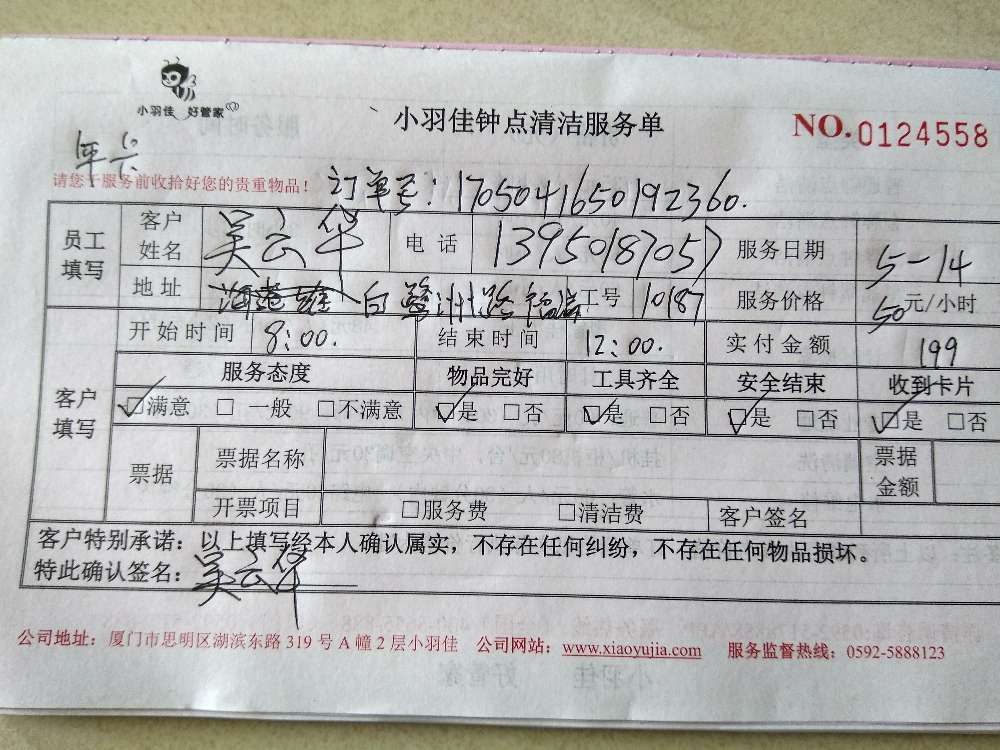 小羽佳 好管家
小羽佳钟点清洁服务单
NO. 0124558
年卡
请您于服务前收拾好您的贵重物品！
订单号：1705041650192360.
员工填写
客户姓名 吴云华 电话 13950187057 服务日期 5-14
地址 白鹭洲路 工号 10187 服务价格 50元/小时
客户填写
开始时间 8:00. 结束时间 12:00. 实付金额 199
服务态度 物品完好 工具齐全 安全结束 收到卡片
☑满意 □一般 □不满意 ☑是 □否 ☑是 □否 ☑是 □否 ☑是 □否
票据 票据名称 票据金额
开票项目 □服务费 □清洁费 客户签名
客户特别承诺：以上填写经本人确认属实，不存在任何纠纷，不存在任何物品损坏。
特此确认签名：吴云华
公司地址：厦门市思明区湖滨东路 319 号 A 幢 2 层小羽佳 公司网站：www.xiaoyujia.com 服务监督热线：0592-5888123